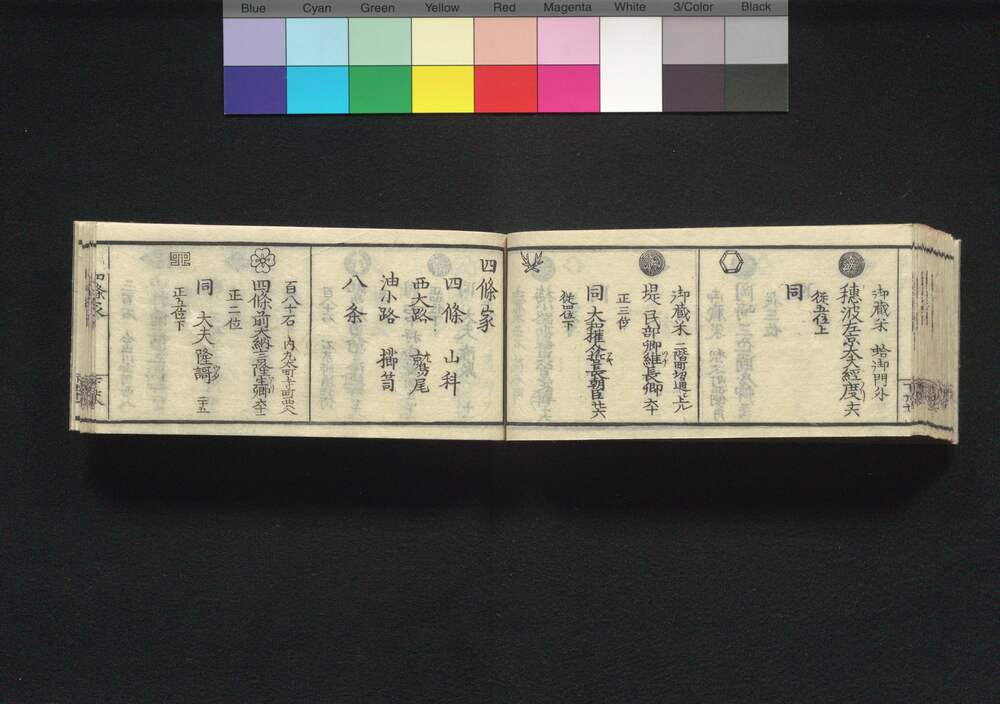 Blue Cyan Green Yellow Red Magenta White 3/Color Black
御蔵米 蛤御門外
穂波左京大夫経度
従五位上
同
御蔵米 二階町切通上ル
堤民部卿維長卿 六十
正三位
同 大和権介䓁長朝臣 廿六
従四位下
四條家
四條 山科
西大路 鷲尾
油小路 櫛笥
八条
百八十石 内丸太町寺町西へ
四條前大納言隆生卿 六十二
正二位
同 大夫隆謌 二十五
正五位下
四條家